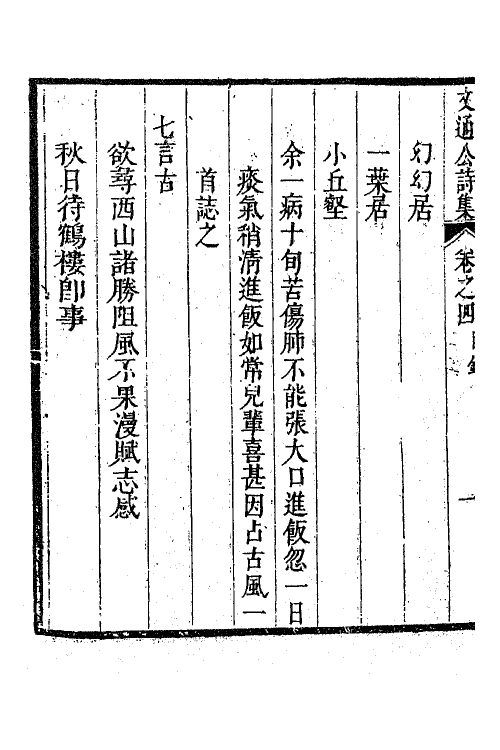 文通公詩集 卷之四目錄 一
幻幻居
一葉居
小丘壑
余一病十旬苦傷肺不能張大口進飯忽一日
痰氣稍淸進飯如常兒輩喜甚因占古風一
首誌之
七言古
欲尋西山諸勝阻風不果漫賦志感
秋日待鶴樓卽事